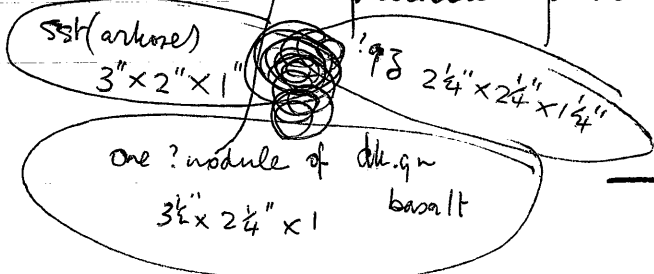 sst (arkose)
3" × 2" × 1"
2¼" × 2¼" × 1¼"
one ? nodule of dk.gn
basalt
3½" × 2¼" × 1